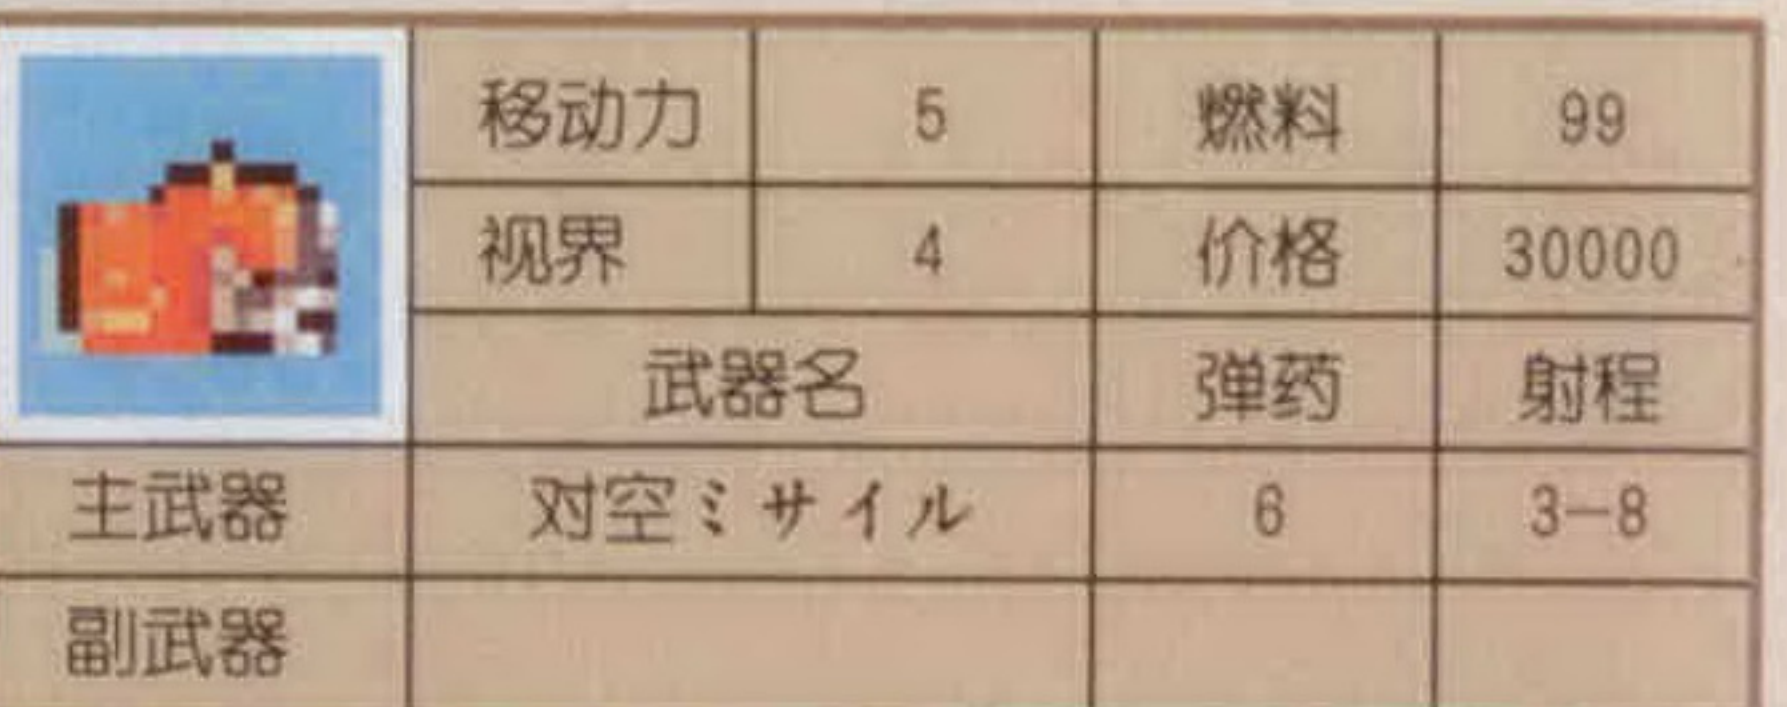 移动力 5 燃料 99
视界 4 价格 30000
武器名 弹药 射程
主武器 对空ミサイル 6 3-8
副武器